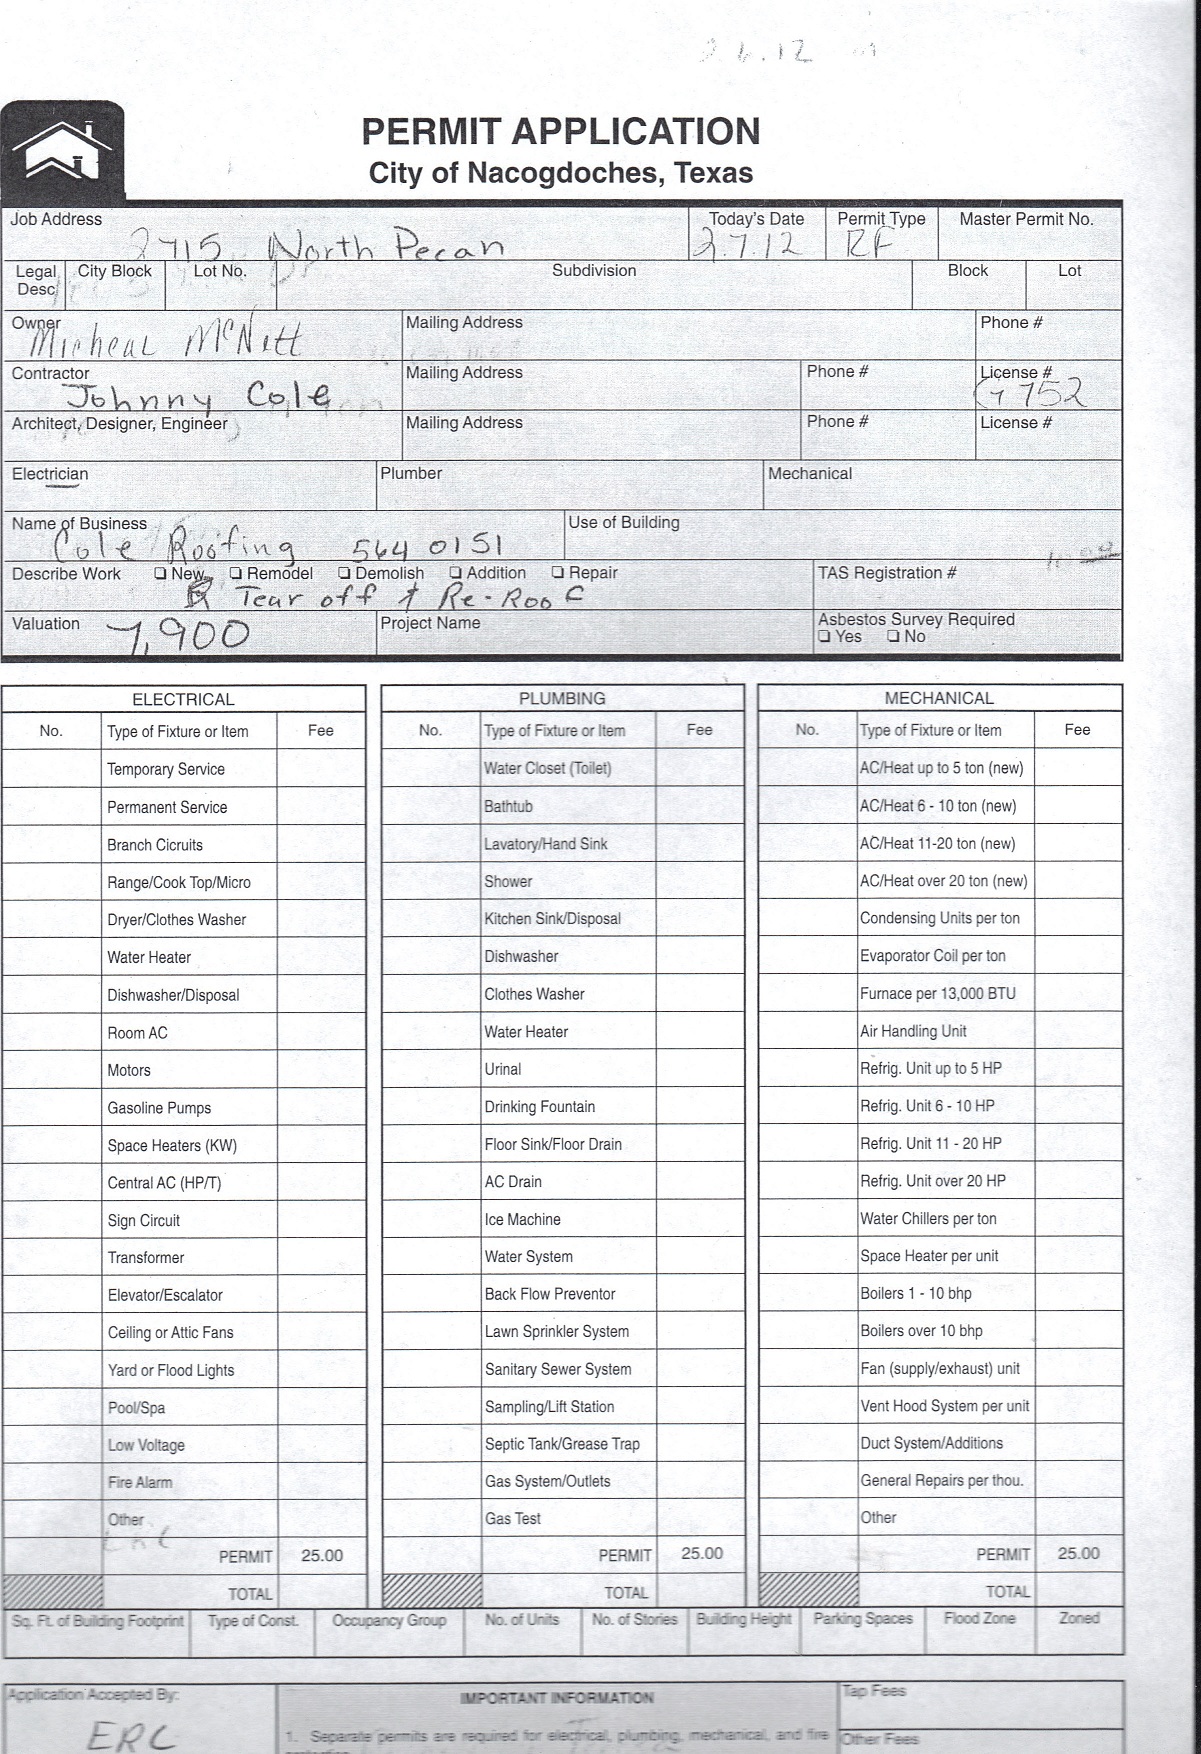 6.12
PERMIT APPLICATION
City of Nacogdoches, Texas
Job Address 2715 North Pecan
Today's Date 2.7.12
Permit Type RF
Master Permit No.
Legal Desc
City Block
Lot No.
Subdivision
Block
Lot
Owner Micheal McNitt
Mailing Address
Phone #
Contractor Johnny Cole
Mailing Address
Phone #
License # G 752
Architect, Designer, Engineer
Mailing Address
Phone #
License #
Electrician
Plumber
Mechanical
Name of Business Cole Roofing 564 0151
Use of Building
Describe Work ❏ New ❏ Remodel ❏ Demolish ❏ Addition ❏ Repair
Tear off & Re-Roof
TAS Registration #
Valuation 7,900
Project Name
Asbestos Survey Required
❏ Yes ❏ No
ELECTRICAL
No. Type of Fixture or Item Fee
Temporary Service
Permanent Service
Branch Cicruits
Range/Cook Top/Micro
Dryer/Clothes Washer
Water Heater
Dishwasher/Disposal
Room AC
Motors
Gasoline Pumps
Space Heaters (KW)
Central AC (HP/T)
Sign Circuit
Transformer
Elevator/Escalator
Ceiling or Attic Fans
Yard or Flood Lights
Pool/Spa
Low Voltage
Fire Alarm
Other
PERMIT 25.00
TOTAL
PLUMBING
No. Type of Fixture or Item Fee
Water Closet (Toilet)
Bathtub
Lavatory/Hand Sink
Shower
Kitchen Sink/Disposal
Dishwasher
Clothes Washer
Water Heater
Urinal
Drinking Fountain
Floor Sink/Floor Drain
AC Drain
Ice Machine
Water System
Back Flow Preventor
Lawn Sprinkler System
Sanitary Sewer System
Sampling/Lift Station
Septic Tank/Grease Trap
Gas System/Outlets
Gas Test
PERMIT 25.00
TOTAL
MECHANICAL
No. Type of Fixture or Item Fee
AC/Heat up to 5 ton (new)
AC/Heat 6 - 10 ton (new)
AC/Heat 11-20 ton (new)
AC/Heat over 20 ton (new)
Condensing Units per ton
Evaporator Coil per ton
Furnace per 13,000 BTU
Air Handling Unit
Refrig. Unit up to 5 HP
Refrig. Unit 6 - 10 HP
Refrig. Unit 11 - 20 HP
Refrig. Unit over 20 HP
Water Chillers per ton
Space Heater per unit
Boilers 1 - 10 bhp
Boilers over 10 bhp
Fan (supply/exhaust) unit
Vent Hood System per unit
Duct System/Additions
General Repairs per thou.
Other
PERMIT 25.00
TOTAL
Sq. Ft. of Building Footprint
Type of Const.
Occupancy Group
No. of Units
No. of Stories
Building Height
Parking Spaces
Flood Zone
Zoned
Application Accepted By:
ERC
IMPORTANT INFORMATION
1. Separate permits are required for electrical, plumbing, mechanical, and fire
Tap Fees
Other Fees